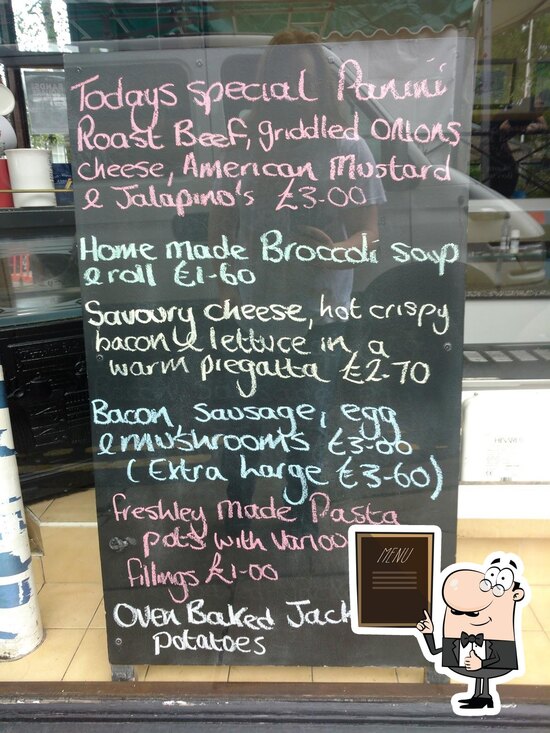 Todays special Panini
Roast Beef, griddled onions
cheese, American Mustard
& Jalapino's £3.00
Home made Broccoli soup
& roll £1-60
Savoury cheese, hot crispy
bacon & lettuce in a
warm piegatta £2.70
Bacon, sausage, egg
& mushrooms £3-00
(Extra large £3-60)
freshley made Pasta
pots with
fillings £1-00
Oven Baked Jack
potatoes
MENU